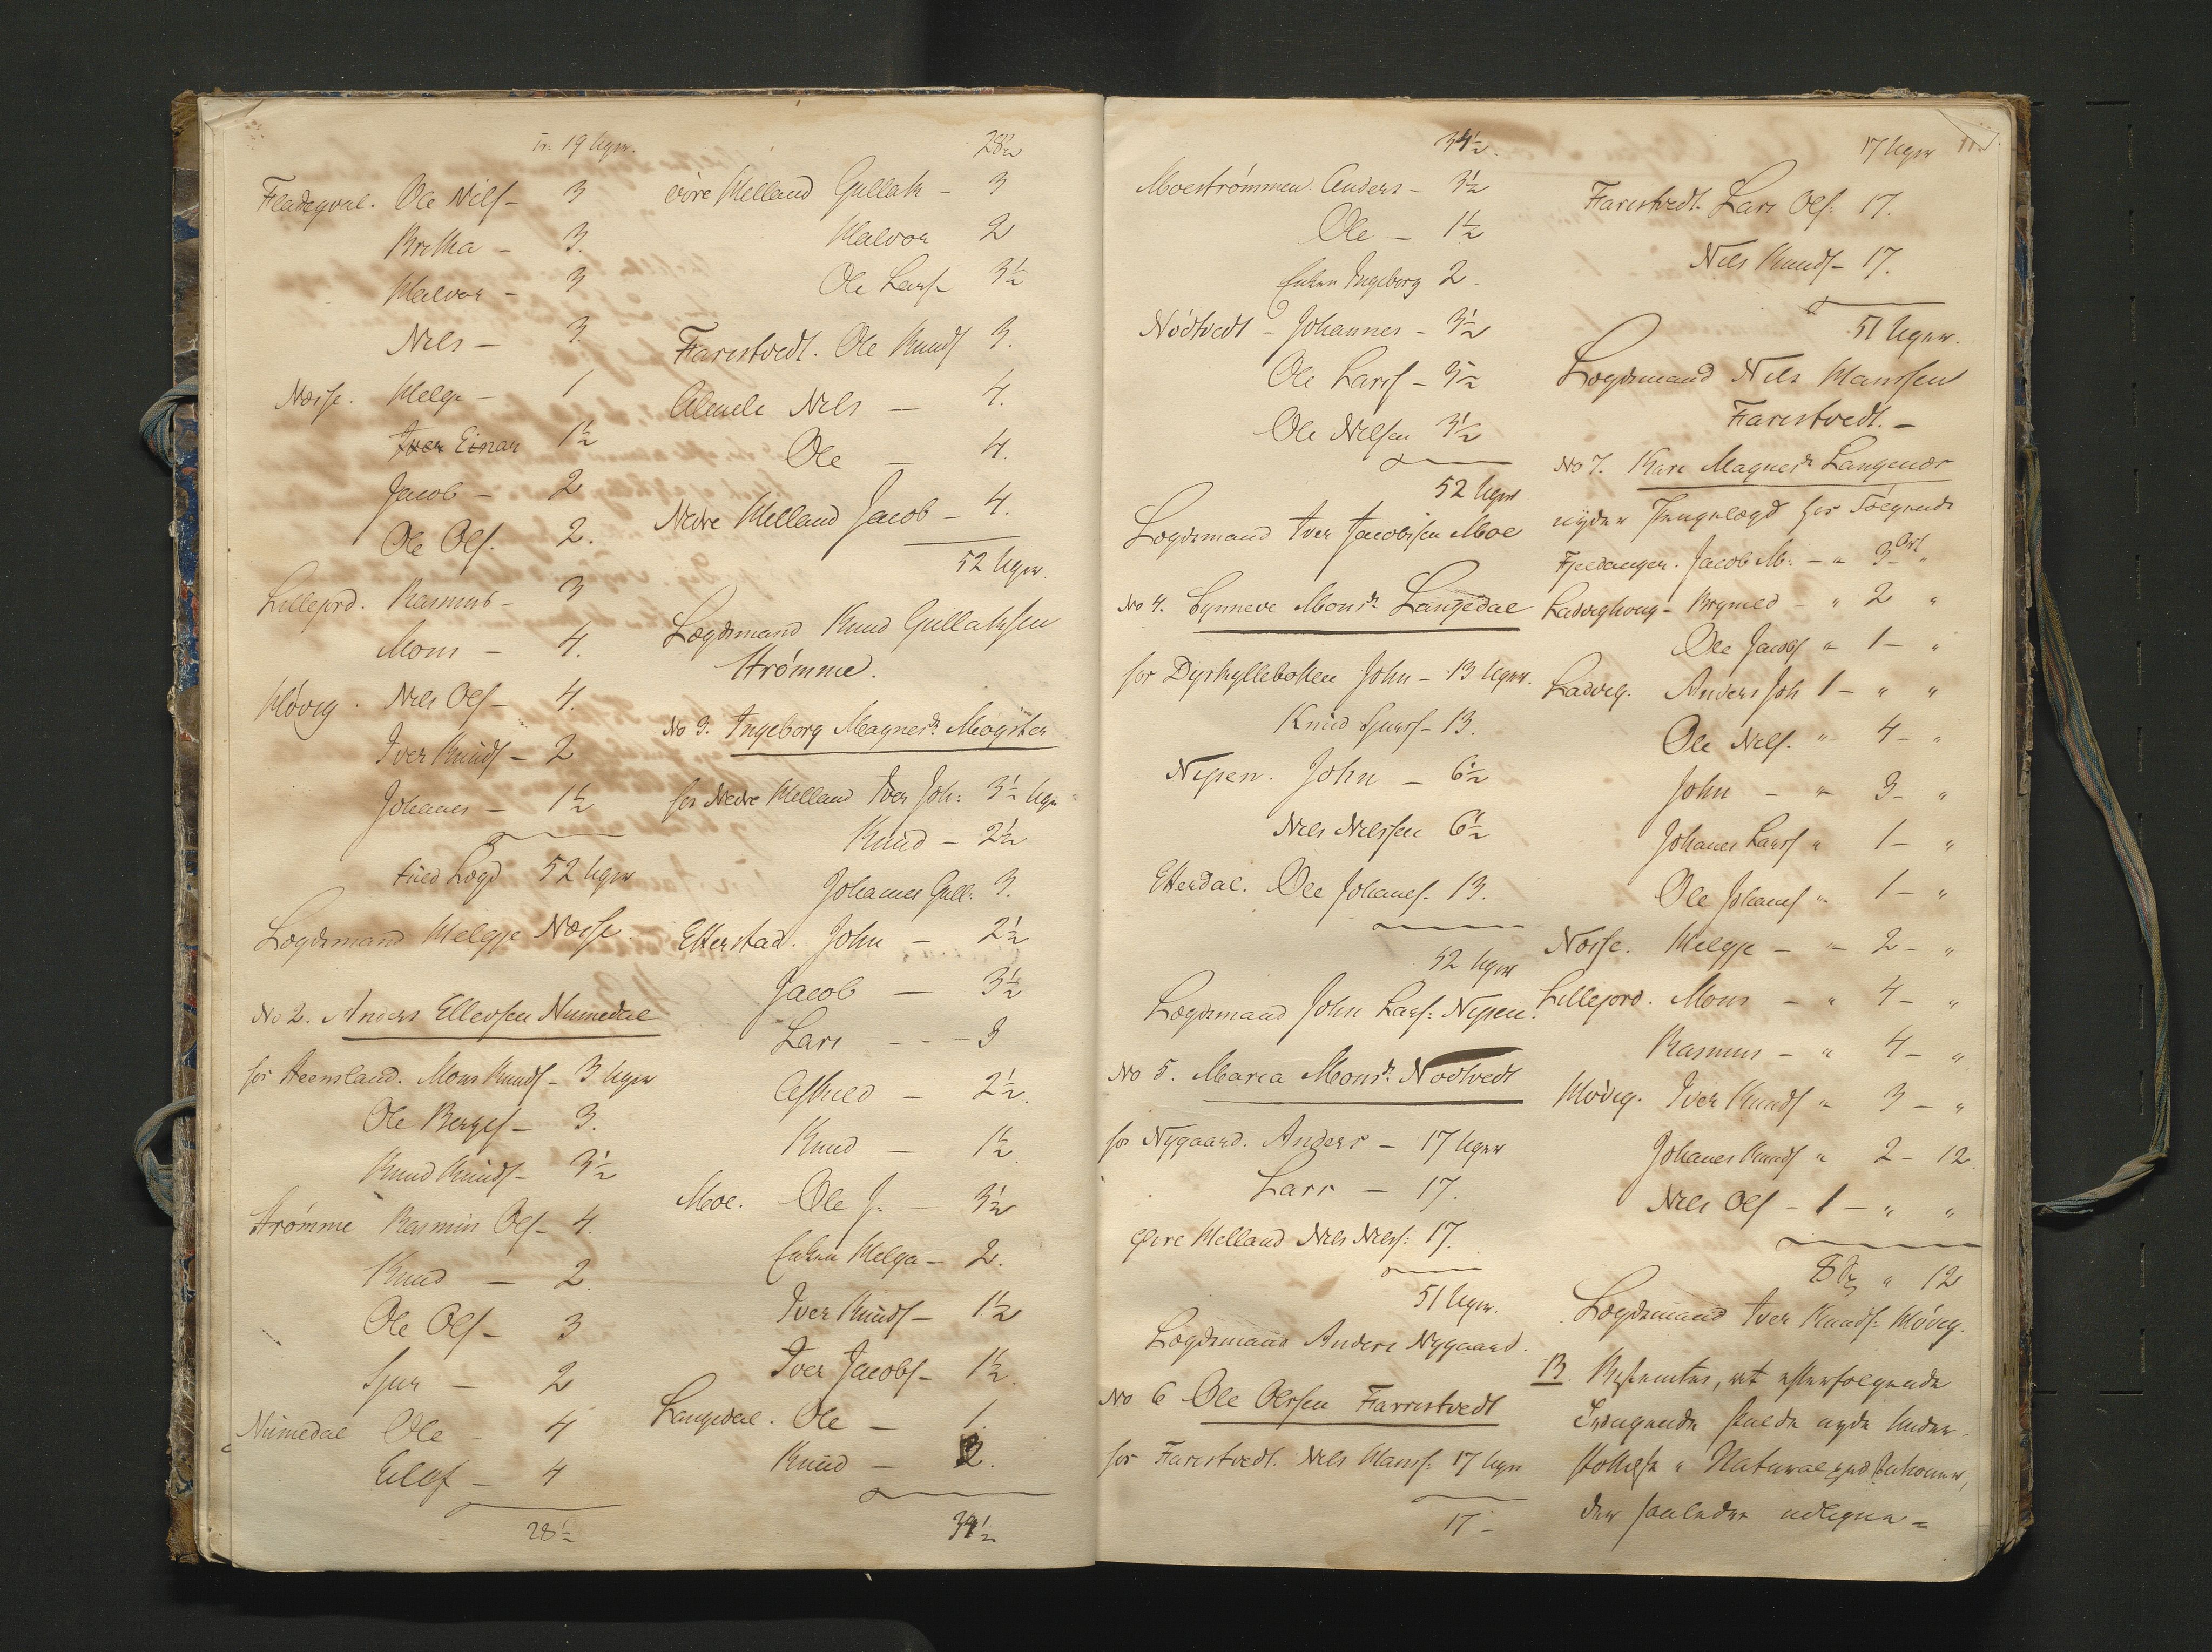 Tr. 19 Uger.
Fladeqval. Ole Nils- 3
Britha - 3.
Halvor - 3
Nils - 3.
Næsse. Helge - 1
Iver Einar 1½
Jacob - 2
Ole Ols. 2.
Lillejord. Rasmus - 3
Mons - 4.
Høvig. Nils Ols- 4.
Iver Knuds- 2
Johanes - 1½
fuld Lægd 52 Uger
Lægdsmand Helgje Næsse.
No 2. Anders Ellevsen Numedal
hos Steensland. Mons Knuds- 3 Uger
Ole Berges- 3.
Knud Knuds- 3½
Strømme Rasmus Ols- 4.
Knud - 2.
Ole Ols- 3
Sjur - 2
Numedal Ole - 4
Eilef - 4
28½
28½
øvre Helland Gullak - 3
Halvor 2
Ole Lars- 3½
Farestvedt. Ole Knuds 3.
Nils - 4.
Ole - 4.
Nedre Helland Jacob - 4.
52 Uger.
Lægdsmand Knud Gullaksen
Strømme.
No 3. Ingeborg Magnesdr. Møgster
hos Nedre Helland Iver Joh: 3½ Uger
Knud - 2½
Johannes Gull: 3.
Etterstad. John - 2½
Jacob - 3½
Lars - - - 3
Askild - 2½.
Knud - 1½
Moe. Ole J. - 3½
Enken Helga - 2.
Iver Knuds- 1½
Iver Jacobs- 1½.
Langedal. Ole - 1.
Knud - 2.
34½
34½.
Moestrømmen. Anders - 3½
Ole - 1½
Enken Ingeborg 2.
Nødtvedt - Johannes - 3½
Ole Larss- 3½
Ole Nilsen 3½
52 Uger
Lægdsmand Iver Jacobsen Moe
No 4. Synneve Monsdr. Langedal
hos Dyrhyllebotten John - 13 Uger.
Knud Sjurs- 13.
Nipen. John - 6½
Nils Nilssen 6½
Etterdal. Ole Johanes. 13.
52 Uger
Lægdsmand John Lars: Nipen.
No 5. Maria Monsdr. Nødtvedt
hos Nygaard. Anders - 17 Uger
Lars - 17.
øvre Helland Nils Nils: 17.
51 Uger.
Lægdsmand Anders Nygaard.
No 6 Ole Olssen Farrestvedt
hos Farestvedt. Nils Hans: 17 Uger
17 -
17 Uger
Farestvedt. Lars Ols: 17.
Nils Knuds- 17.
51 Uger.
Lægdsmand Nils Hanssen
Farestvedt. -
No 7. Kari Magnesdr. Langenes
nyder Pengelægd hos Følgende
Fjeldanger. Jacob M. - " 3 Ort "
Ladvighoug - Brynild - " 2 "
Ole Jacobs " 1 - "
Ladvig. Anders Joh 1 - " "
Ole Nils. " 4 - "
John - " 3 - "
Johanes Larss " 1 - "
Ole Johanes " 1 - "
Næsse. Helgje - " 2 - "
Lillejord. Mons - " 4 - "
Rasmus - " 4 - "
Høvig. Iver Knuds " 3 - "
Johanes Knuds " 2 - 12.
Nils Ols - 1 - " "
8 " 12
Lægdsmand Iver Knuds: Høvig.
B. Bestemtes, at efterfølgende
Trængende skulde nyde Under-
støttelse i Naturalpræstationer,
der saaledes udligne=